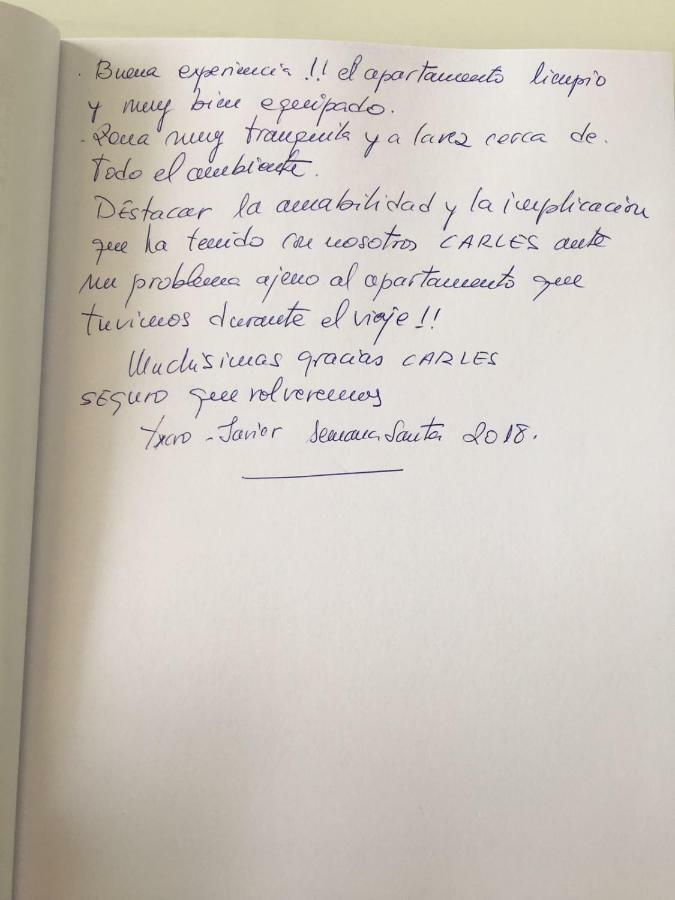 . Buena experiencia !! el apartamento limpio
y muy bien equipado.
. Zona muy tranquila y a la vez cerca de.
todo el ambiente.
DEstacar la amabilidad y la implicación
que ha tenido con nosotros CARLES ante
un problema ajeno al apartamento que
tuvimos durante el viaje !!
Muchisimas gracias CARLES
SEGURO que volveremos
- Javier Semana Santa 2018.